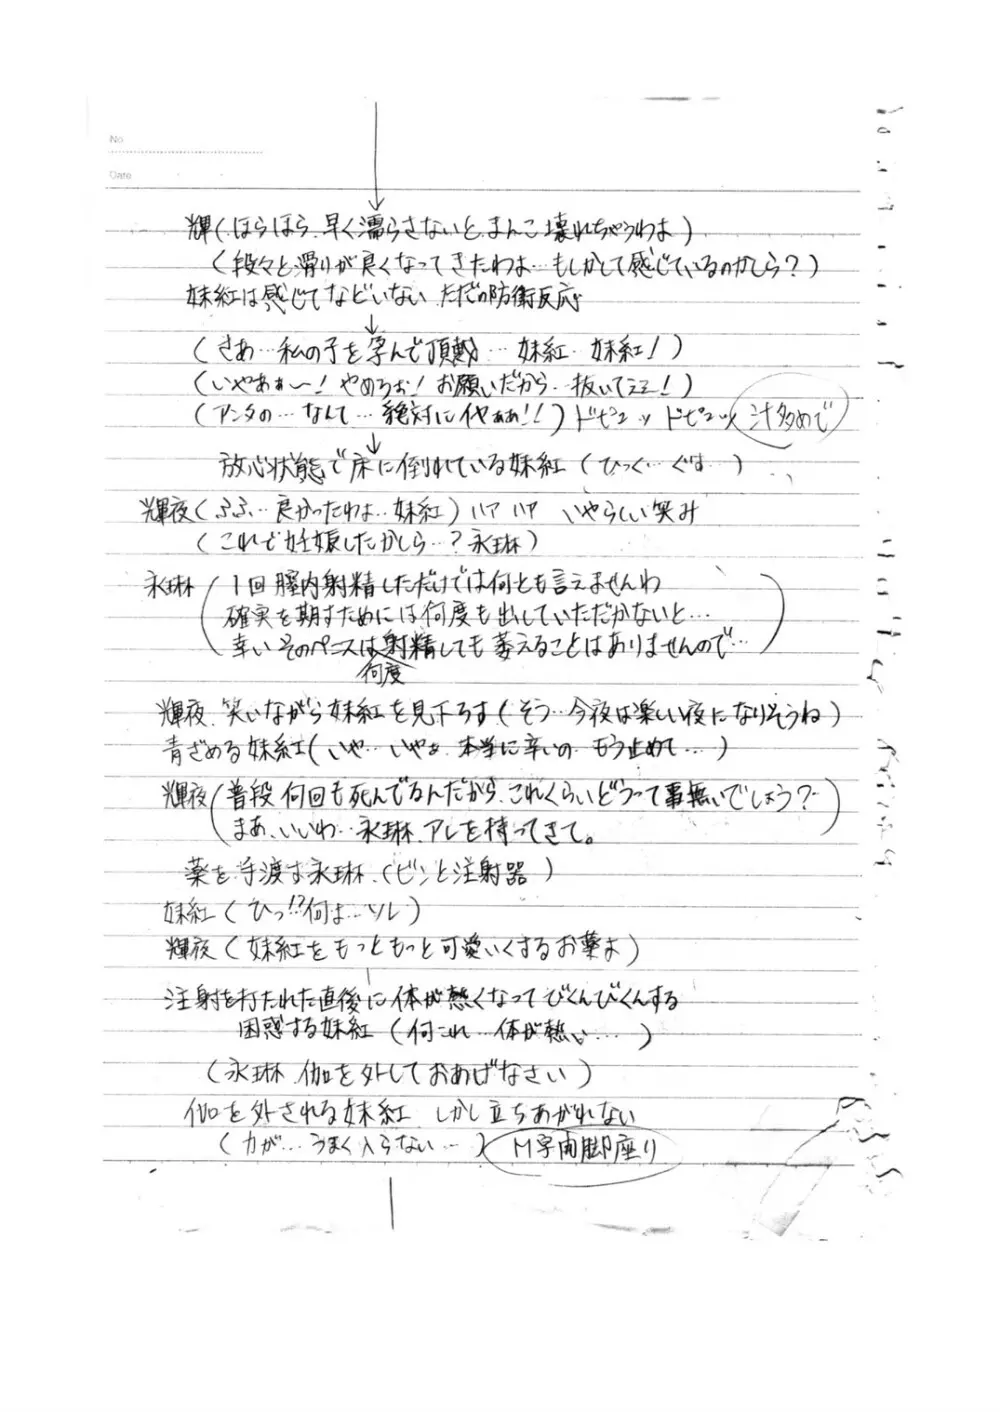 No
Date
輝(ほらほら、早く濡らさないと、まんこ壊れちゃうわよ)
(段々と滑りが良くなってきたわよ…もしかして感じているのかしら?)
妹紅は感じてなどいない ただの防衛反応
(さあ…私の子を孕んで頂戴…妹紅…妹紅!)
(いやあぁ〜!やめろぉ!お願いだから…抜いてぇえ!)
(アンタの…なんて…絶対にイヤぁぁ!!)ドピュッ ドピュッ 汁多めで
放心状態で床に倒れている妹紅(ひっく…ぐす…)
輝夜(ふふ…良かったわよ…妹紅)ハァ ハァ いやらしい笑み
(これで妊娠したかしら…?永琳)
永琳(1回膣内射精しただけでは何とも言えませんわ
確実を期すためには何度も出していただかないと…
幸いそのペニスは何度射精しても萎えることはありませんので…)
輝夜、笑いながら妹紅を見下ろす(そう…今夜は楽しい夜になりそうね)
青ざめる妹紅(いや…いやよ、本当に辛いの…もう止めて…)
輝夜(普段何回も死んでるんだから、これくらいどうって事無いでしょう?
まあ、いいわ…永琳、アレを持ってきて。)
薬を手渡す永琳、(ビンと注射器)
妹紅(ひっ!?何よ…ソレ)
輝夜(妹紅をもっともっと可愛いくするお薬よ)
注射を打たれた直後に体が熱くなってびくんびくんする
困惑する妹紅(何これ…体が熱い…)
(永琳、伽を外しておあげなさい)
伽を外される妹紅 しかし立ちあがれない
(力が…うまく入らない…)M字開脚座り